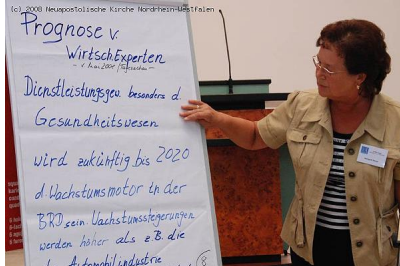 (c) 2008 Neuapostolische Kirche Nordrhein-Westfalen
Prognose v.
Wirtsch.Experten
Dienstleistungsgew. besonders d.
Gesundheitswesen
wird zukünftig bis 2020
d. Wachstumsmotor in der
BRD sein Wachstumssteigerungen
werden höher als z.B. die
Automobilindustrie